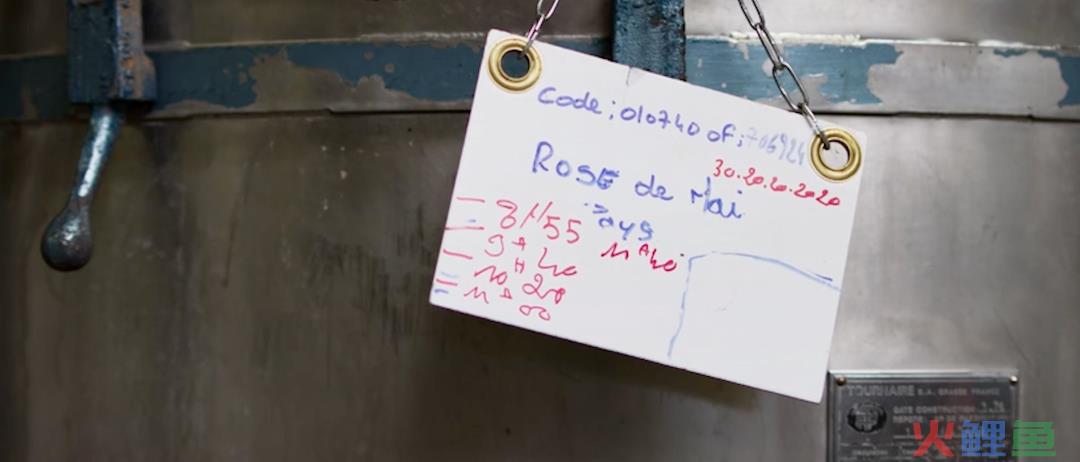 Code: 010740 of: 706924
30.20.6.2020
ROSE de Mai
Pays
8H55
9H40
11H40
10H20
11H00
TOURNAIRE S.A. GRASSE FRANCE
DATE CONSTRUCTION
火鲤鱼